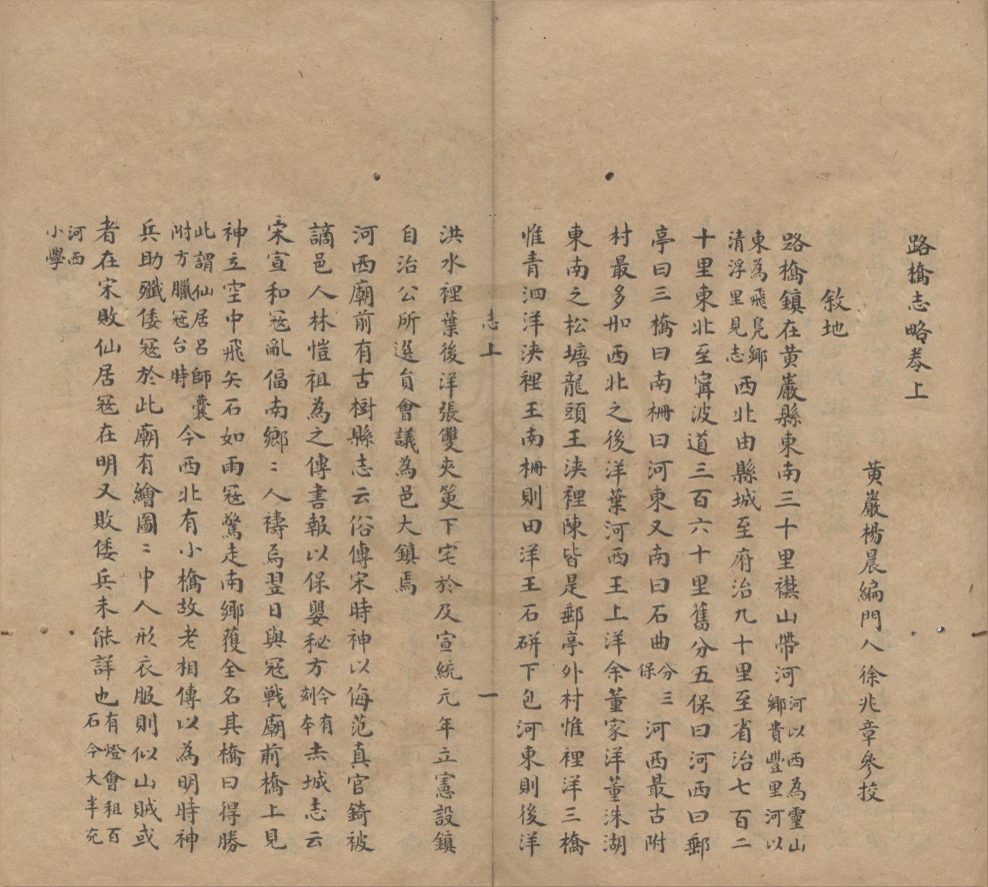 路橋志略卷上
黃巖楊晨編門人徐兆章參挍
敘地
路橋鎮在黃巖縣東南三十里襟山帶河河以西為靈山鄉貴豐里河以
東為飛鳧鄉清浮里見志西北由縣城至府治九十里至省治七百二
十里東北至甯波道三百六十里舊分五保曰河西曰郵
亭曰三橋曰南柵曰河東又南曰石曲分三保河西最古附
村最多如西北之後洋葉河西王上洋余董家洋董洙湖
東南之松塘龍頭王泱裡陳皆是郵亭外村惟裡洋三橋
惟青泗洋泱裡王南柵則田洋王石硑下包河東則後洋
志上
一
洪水裡葉後洋張雙夾筴下宅於及宣統元年立憲設鎮
自治公所選員會議為邑大鎮焉
河西廟前有古樹縣志云俗傳宋時神以侮范真官錡被
謫邑人林愷祖為之傳書報以保嬰秘方今有刻本赤城志云
宋宣和寇亂偪南鄉〻人禱焉翌日與寇戰廟前橋上見
神立空中飛矢石如雨寇驚走南鄉獲全名其橋曰得勝
此謂仙居呂師囊附方臘寇台時今西北有小橋故老相傳以為明時神
兵助殲倭寇於此廟有繪圖〻中人形衣服則似山賊或
者在宋敗仙居寇在明又敗倭兵未能詳也有燈會租百石今大半充
河西小學